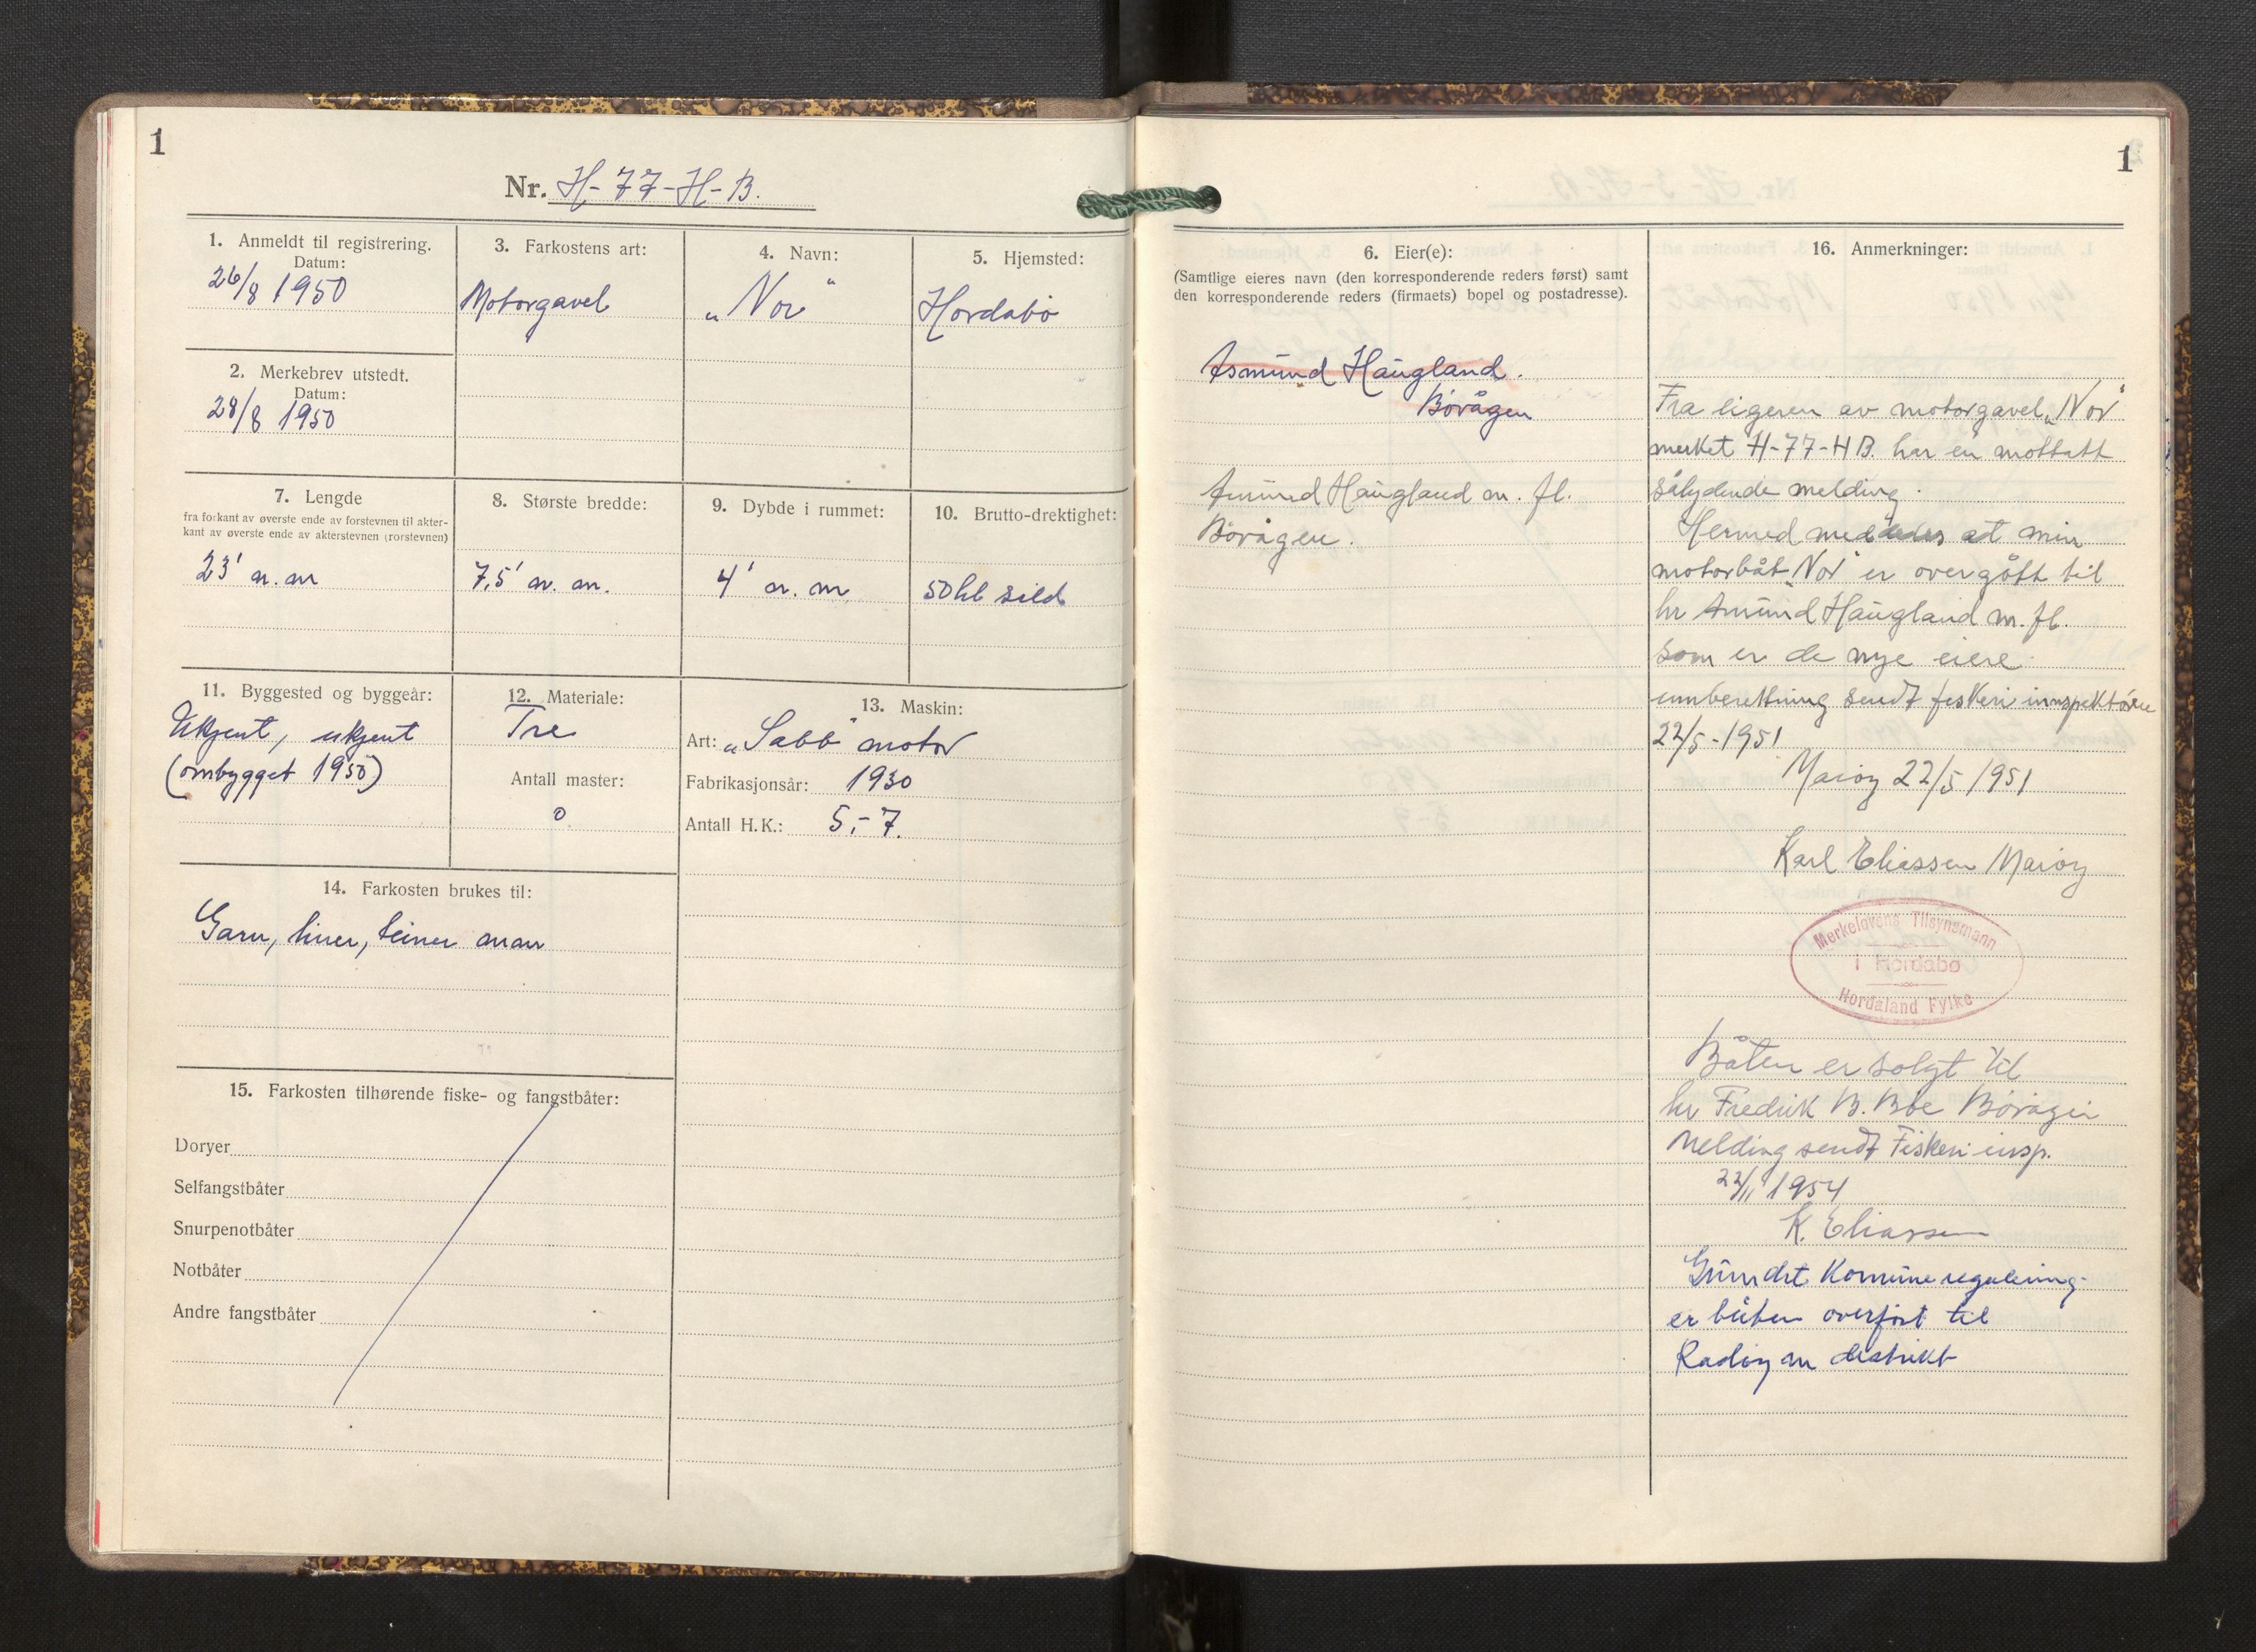 1
Nr. H-77-H-B.
1. Anmeldt til registrering.
Datum:
26/8 1950
2. Merkebrev utstedt.
Datum:
28/8 1950
3. Farkostens art:
Motorgavel
4. Navn:
„Nor"
5. Hjemsted:
Hordabø
7. Lengde
fra forkant av øverste ende av forstevnen til akter-
kant av øverste ende av akterstevnen (rorstevnen)
23'
8. Største bredde:
7,5'
9. Dybde i rummet:
4'
10. Brutto-drektighet:
50 hl sild
11. Byggested og byggeår:
Ukjent, ukjent
(ombygget 1950)
12. Materiale:
Tre
Antall master:
0
13. Maskin:
Art: „Sabb" motor
Fabrikasjonsår: 1930
Antall H.K.: 5,-7.
14. Farkosten brukes til:
Garn, liner, teiner
15. Farkosten tilhørende fiske- og fangstbåter:
Doryer
Selfangstbåter
Snurpenotbåter
Notbåter
Andre fangstbåter
1
6. Eier(e):
(Samtlige eieres navn (den korresponderende reders først) samt
den korresponderende reders (firmaets) bopel og postadresse).
Asmund Haugland.
Bøvågen
Amund Haugland m. fl.
Bøvågen.
16. Anmerkninger:
Fra eigeren av motorgavel „Nor"
merket H-77-HB. har en mottatt
sålydende melding.
Hermed meddeles at min
motorbåt „Nor" er overgått til
hr Amund Haugland m. fl.
som er de nye eiere
innberettning sendt fiskeri innspektøren
22/5-1951
Marøy 22/5 1951
Karl Eliassen Marøy
Merkelovens Tilsynsmann
i Hordabø
Hordaland Fylke
Båten er solgt til
hr Fredrik B. Bøe Bøvågen
Melding sendt Fiskeri insp.
22/11 1954
K. Eliassen
Grundet Komune regulering
er båten overført til
Radøy distrikt